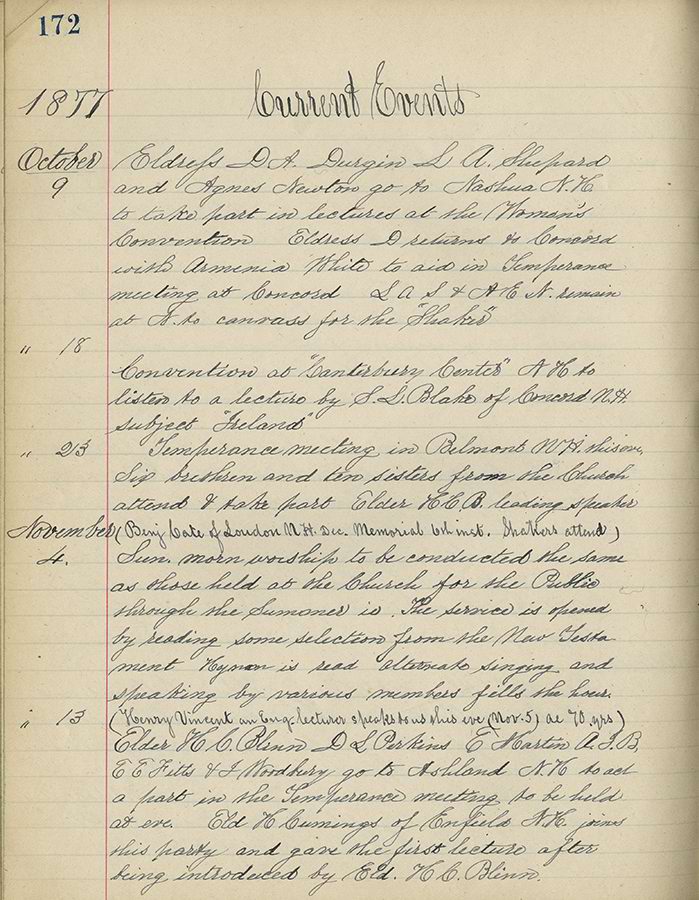 172
1877 Current Events
October 9 Eldress D. A. Durgin L. A. Shepard
and Agnes Newton go to Nashua N.H.
to take part in lectures at the Women's
Convention Eldress D returns to Concord
with Armenia White to aid in Temperance
meeting at Concord L A S & A E N. remain
at N. to canvass for the "Shaker"
" 18
Convention at "Canterbury Center" N H to
listen to a lecture by S. L. Blake of Concord N.H.
subject "Ireland"
" 23 Temperance meeting in Belmont N.H. this eve,
Six brethren and ten sisters from the Church
attend & take part Elder H.C.B. leading speaker
November (Benj Cate of Loudon N.H. Dec. Memorial 6th inst. Shakers attend)
4. Sun. morn worship to be conducted the same
as those held at the Church for the Public
through the Summer is The service is opened
by reading some selection from the New Testa
ment Hymn is read alternate singing and
speaking by various members fills the hour.
" 13 (Henry Vincent an Eng. lecturer speaks to us this eve (Nov. 5) ae 70 yrs)
Elder H. C. Blinn D S Perkins E Martin A. J. B.
E E Fitts & J Woodbury go to Ashland N.H to act
a part in the Temperance meeting to be held
at eve. Eld H Cumings of Enfield N.H. joins
this party and gave the first lecture after
being introduced by Eld. H. C. Blinn.